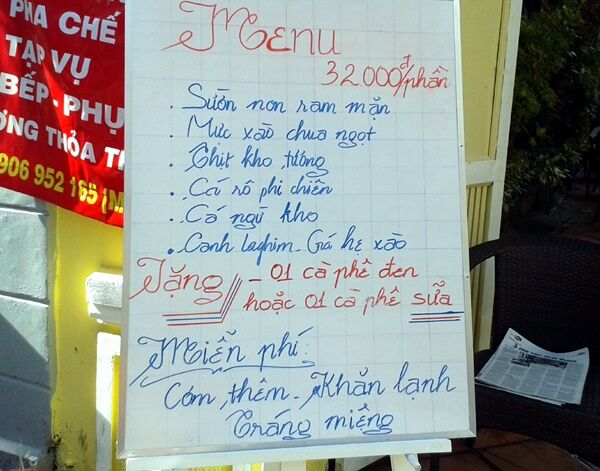 PHA CHẾ
TẠP VỤ
BẾP - PHỤ
ƠNG THỎA TH
906 952 165 (M
Menu
32.000đ/phần
. Sườn non ram mặn
. Mực xào chua ngọt
. Thịt kho tương
. Cá rô phi chiên
. Cá ngừ kho
. Canh laghim - Giá hẹ xào
Tặng - 01 cà phê đen
hoặc 01 cà phê sữa
Miễn phí:
Cơm thêm - Khăn lạnh
Tráng miệng